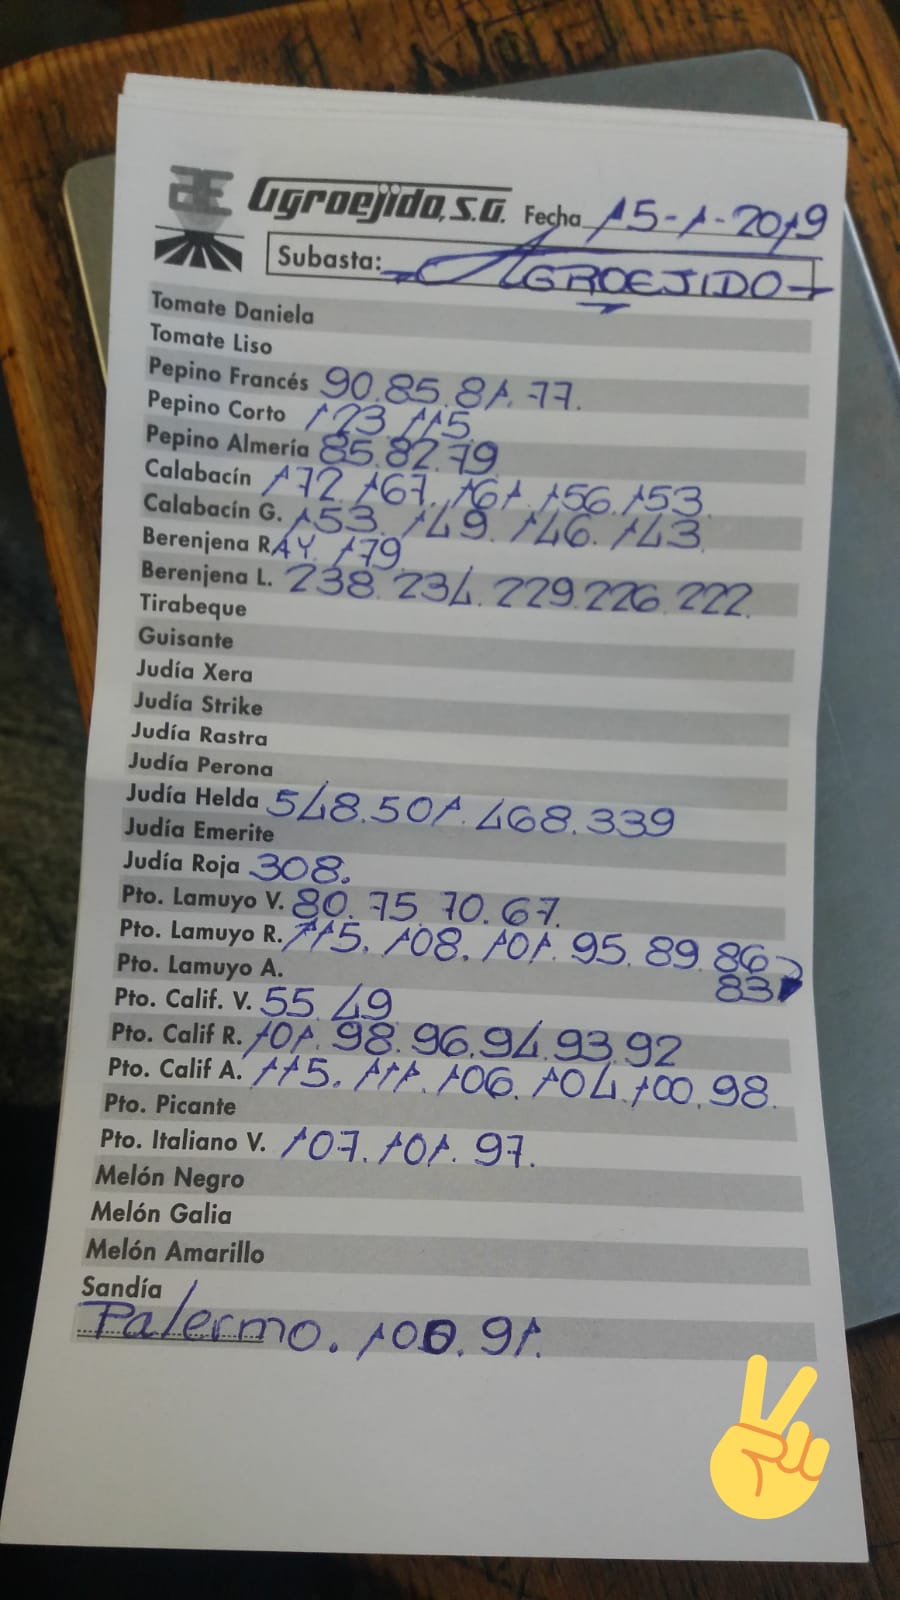 Agroejido, S.A. Fecha 15-1-2019
Subasta: AGROEJIDO
Tomate Daniela
Tomate Liso
Pepino Francés 90. 85. 81. 77.
Pepino Corto 123. 115.
Pepino Almería 85. 82. 79
Calabacín 172. 167. 161. 156. 153.
Calabacín G. 153. 149. 146. 143.
Berenjena RAY. 179.
Berenjena L. 238. 234. 229. 226. 222.
Tirabeque
Guisante
Judía Xera
Judía Strike
Judía Rastra
Judía Perona
Judía Helda 548. 501. 468. 339
Judía Emerite
Judía Roja 308.
Pto. Lamuyo V. 80. 75. 70. 67.
Pto. Lamuyo R. 115. 108. 101. 95. 89. 86
Pto. Lamuyo A. 83
Pto. Calif. V. 55. 49
Pto. Calif R. 101. 98. 96. 94. 93. 92
Pto. Calif A. 115. 111. 106. 104. 100. 98.
Pto. Picante
Pto. Italiano V. 107. 101. 97.
Melón Negro
Melón Galia
Melón Amarillo
Sandía
Palermo. 100. 91.